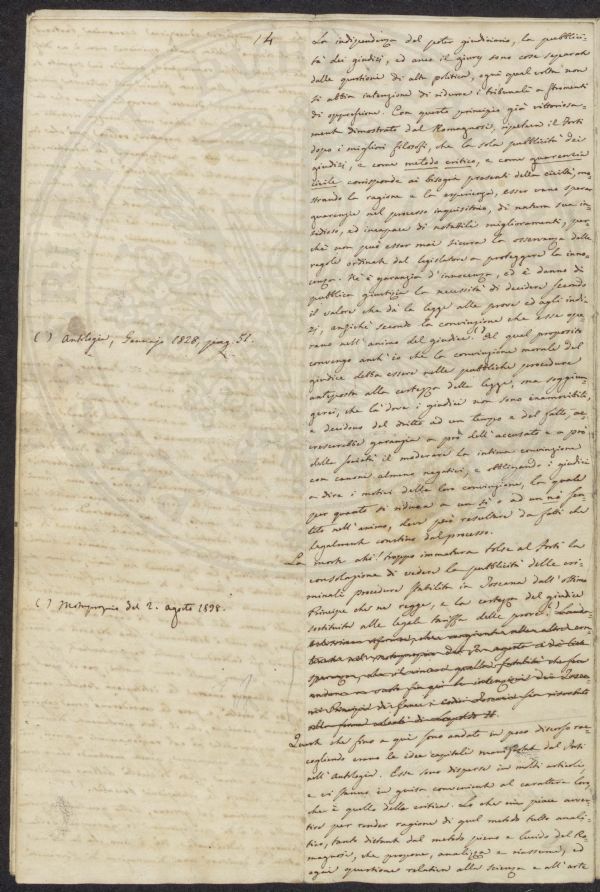 14
La indipendenza del poter giudiziario, la pubblici-
tà dei giudizj, ed anco il giury sono cose separate
dalle questioni di alta politica, ogni qual volta non
si abbia intenzione di ridurre i tribunali a stromenti
di oppressione. Con questo principio già vittoriosa-
mente dimostrato dal Romagnosi, ripeteva il Forti
dopo i migliori filosofi, che la sola pubblicità dei
giudizj, e come metodo critico, e come guarentigia
civile corrisponde ai bisogni presenti della civiltà, mo-
strando la ragione e la esperienza, esser vano sperar
guarenzie nel processo inquisitorio, di natura sua in-
sidioso, ed incapace di notabili miglioramenti, per-
chè non può esser mai sicura la osservanza delle
regole ordinate dal legislatore a proteggere la inno-
cenza. Nè è garanzia d'innocenza, ed è danno di
pubblica giustizia la necessità di decidere secondo
il valore che dà la legge alle prove ed agli indi-
zj, anzichè secondo la convinzione che esse ope-
rano nell'animo del giudice. () Al qual proposito
convengo anch'io che la convinzione morale del
giudice debba essere nelle pubbliche procedure
anteposta alla certezza della legge, ma soggiun-
gerei, che là dove i giudici non sono inamovibili,
e decidono del dritto ad un tempo e del fatto, ac-
crescerebbe garanzia a prò dell'accusato e a prò
della società il moderare la intima convinzione
con canoni almeno negativi, e obbligando i giudici
a dire i motivi della loro convinzione, la quale
per quanto si riduca a un sì o ad un nò sen-
tito nell'animo, deve però resultare da fatti che
legalmente constino dal processo.
() Antologia, Gennajo 1828, pag. 51.
La morte ahi! troppo immatura tolse al Forti la
consolazione di vedere la pubblicità delle cri-
minali procedure stabilita in Toscana dall'ottimo
Principe che ne regge, e la certezza del giudice
sostituita alle legale tariffa delle prove. ()
() Motuproprio del 2. agosto 1838.
Queste che fino a quì sono andato in poco discorso rac-
cogliendo erano le idee capitali manifestate dal Forti
nell'Antologia. Esse sono disperse in molti articoli,
e vi stanno in guisa conveniente al carattere loro
che è quello della critica. Lo che mi piace avver-
tire per render ragione di quel metodo tutto anali-
tico, tanto distante dal metodo pieno e lucido del Ro-
magnosi, che propone, analizza e riassume, ed
ogni questione relativa alla scienza e all'arte